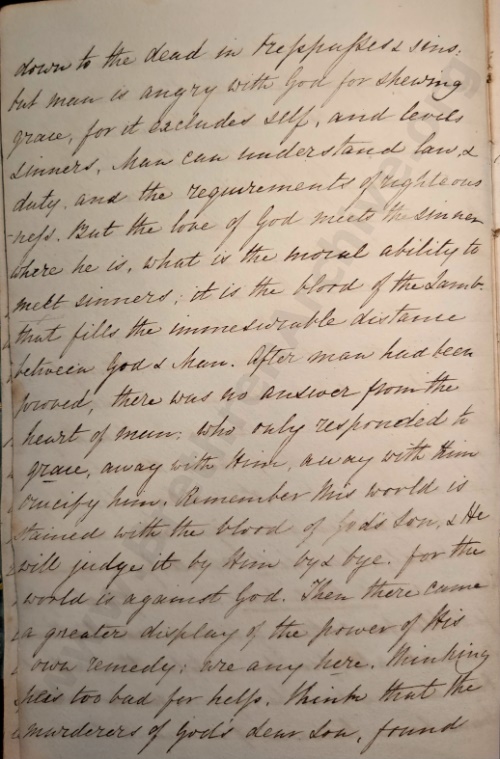 down to the dead in tresspasses & sins.
but man is angry with God for shewing
grace, for it excludes self, and levels
sinners. Man can understand law, &
duty. and the requirements of righteous
-ness. But the love of God meets the sinner
where he is, what is the moral ability to
meet sinners; it is the blood of the Lamb.
that fills the immesurable distance
between God & Man. After man had been
proved, there was no answer from the
heart of man: who only responded to
grace, away with Him, away with Him
crucify him. Remember this world is
stained with the blood of God's Son, & He
will judge it by Him by & bye. for the
world is against God. Then there came
a greater display of the power of His
own remedy: are any here. thinking
too bad for help. think that the
murderers of God's dear Son, found